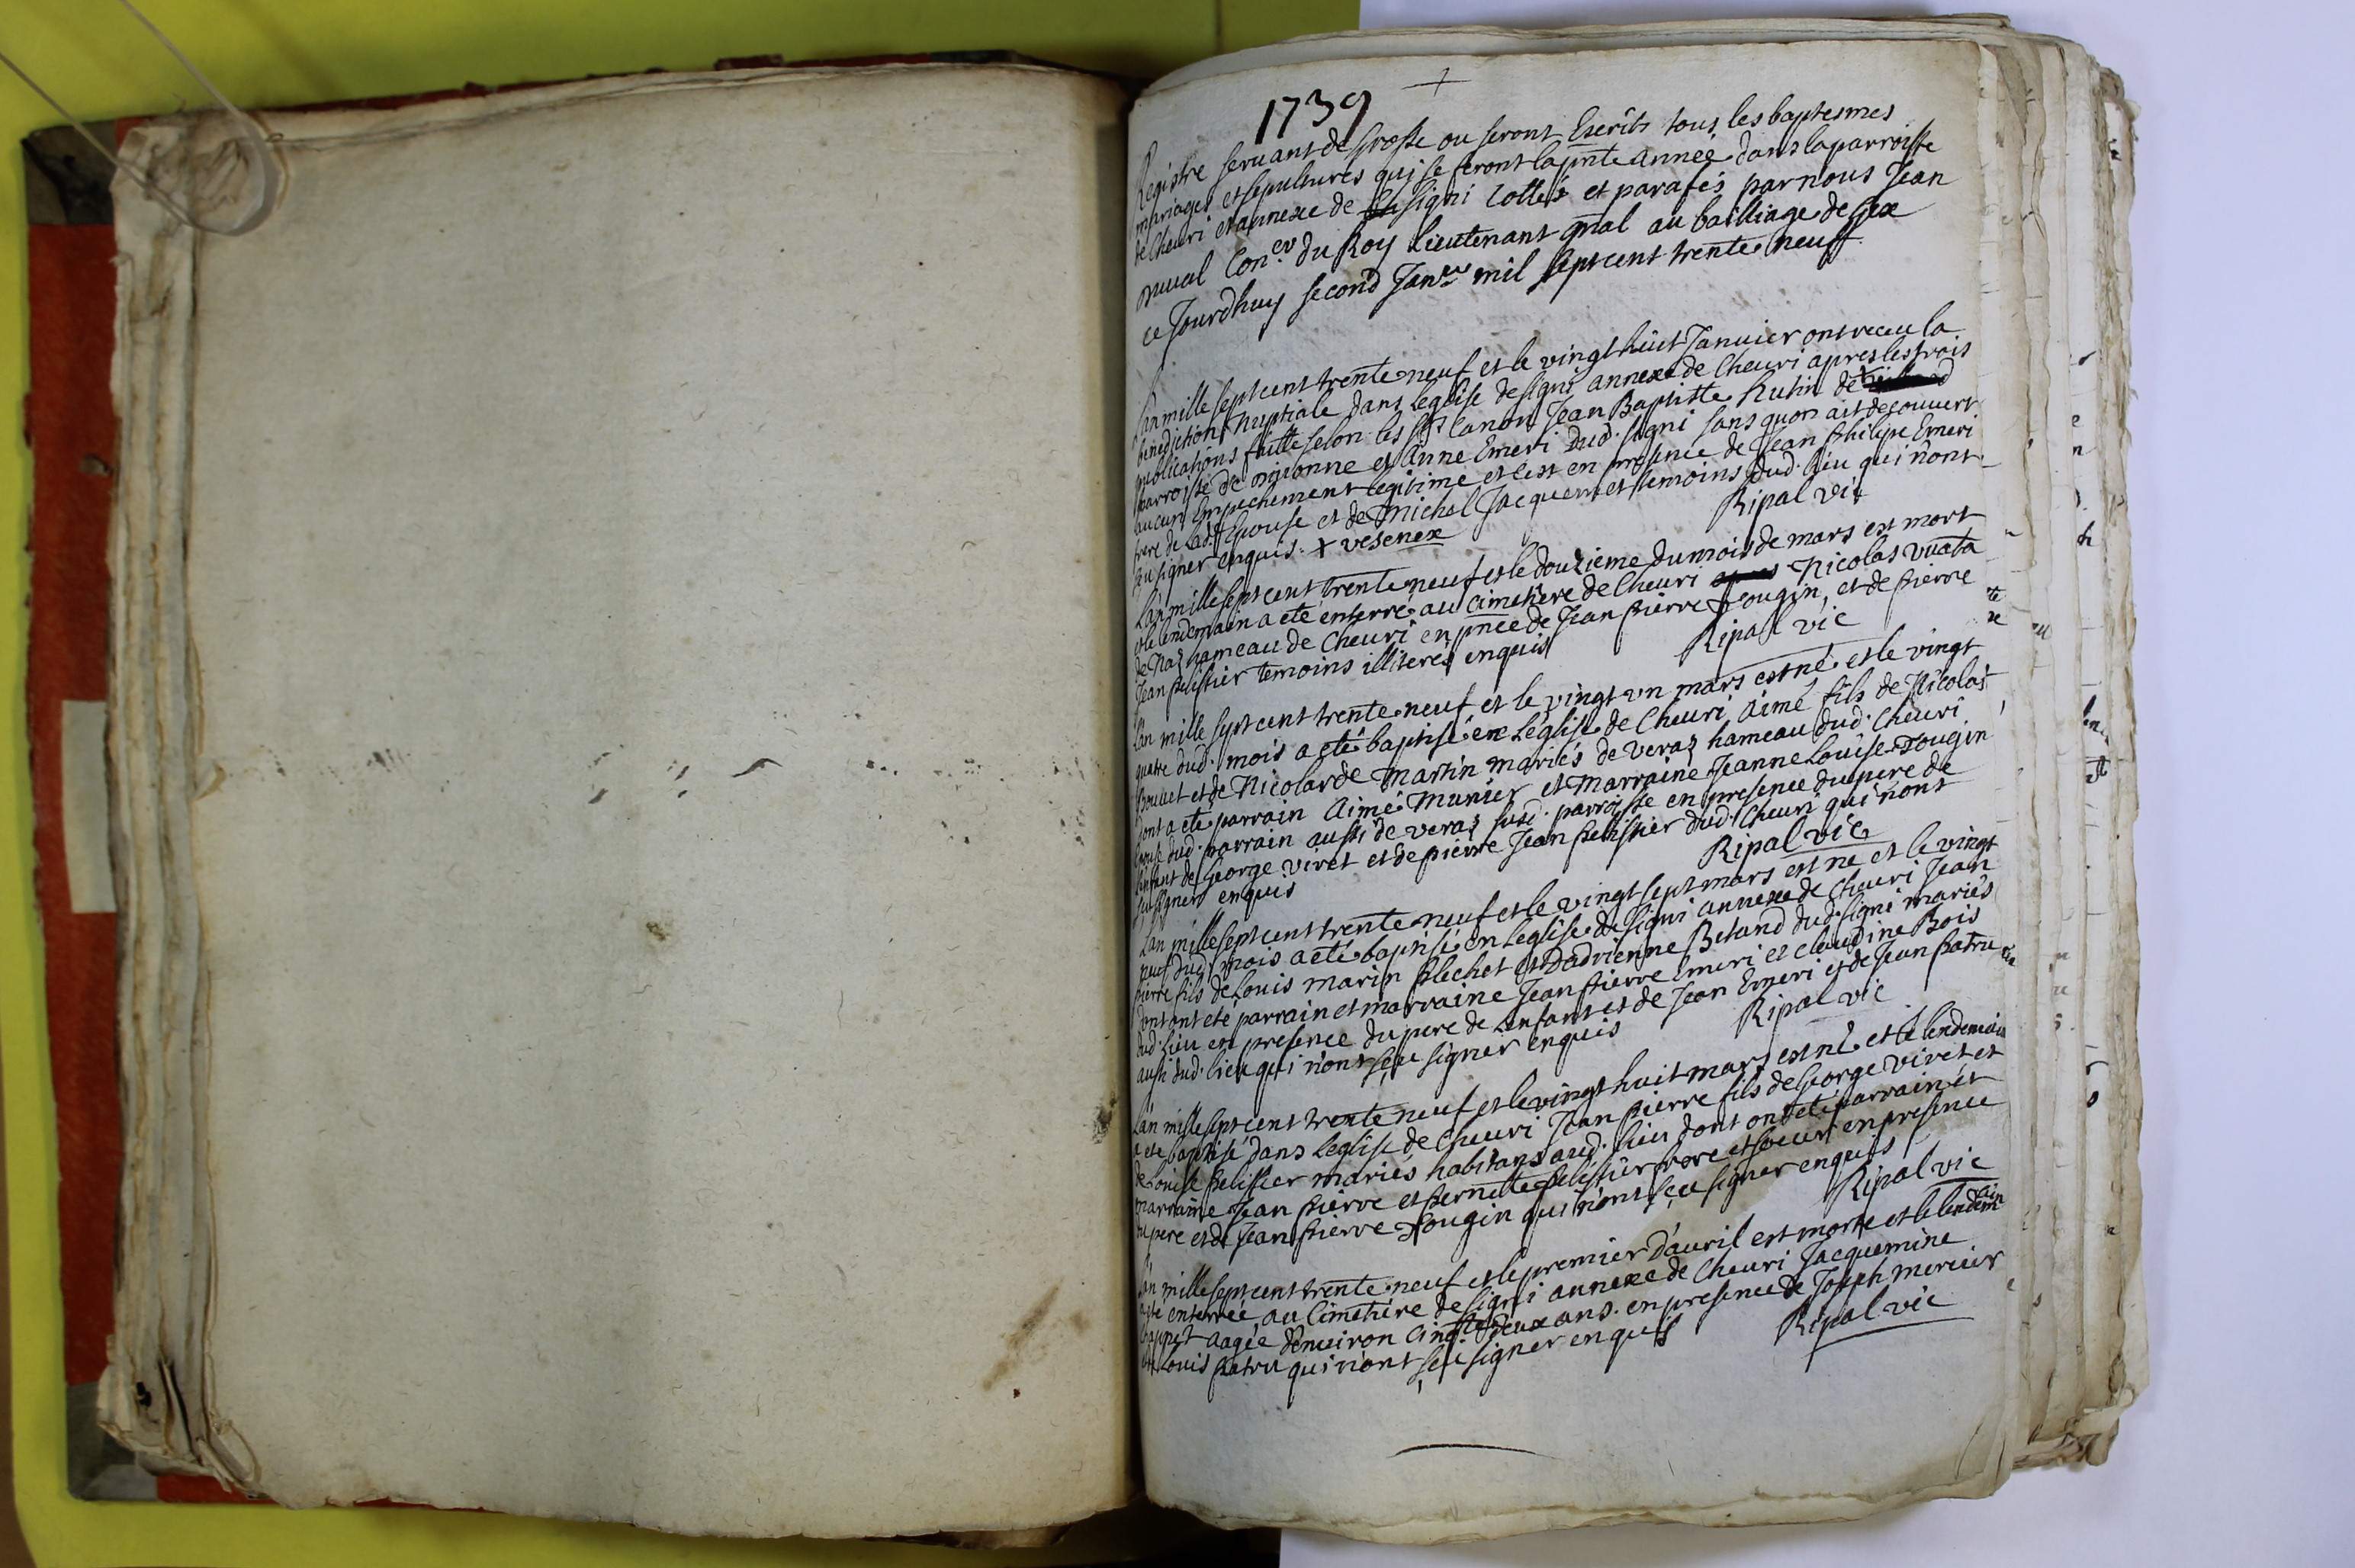 1739
Registre servant de Grosse ou seront Escrits tous les baptesmes
mariages et sepultures qui se feront la pnte année dans la parroisse
de Cheuri et annexe de signi Cottés et parafés par nous Jean
Con.er du Roy Lieutenant gnal au bailliage de Gex
ce Jourdhuy second Janv.er mil sept cent trente neuff
L'an mille sept cent trente neuf et le vingt huit Janvier ont receu la
benediction Nuptiale dans Leglise de signi annexe de Cheuri apres les trois
publications faitte selon les sts Canon Jean Baptitte Hutin de
parroisse de mijionne et Anne Emeri dud. signi sans quon ait decouvert
aucun Empechement legitime et cest en presence de Jean philipe Emeri
frere de Lad. Epouse et de Michel Jacquemet temoins dud. lieu qui n'ont
sçu signer enquis. + vesenex
Ripal vic
L'an mille sept cent trente neuf et le douzieme du mois de mars est mort
et le lendemain a eté enterré au cimetiere de Cheuri Nicolas vuata
de Naz hameau de Cheuri en pnce de Jean pierre Dougin, et de pierre
Jean pelissier temoins illiteres enquis
Ripal vic
L'an mille sept cent trente neuf et le vingt un mars est né et le vingt
quatre dud. mois a eté baptisé en L'église de Cheuri Aimé fils de Nicolas
et de Nicolarde Martin mariés de veraz hameau dud. Cheuri
dont a eté parrain Aimé Munier et Marraine Jeanne Louise Dougin
Epouse dud. parrain aussi de veraz susd. parroisse en presence du pere de
L'enfant de George viret et de pierre Jean pelissier dud. Cheuri qui n'ont
sçu signer enquis
Ripal vic
L'an mille sept cent trente neuf et le vingt sept mars est ne et le vingt
neuf dud. mois a eté baptisé en Leglise de signi annexe de Cheuri Jean
pierre fils de Louis marin plechet et Dadrienne Betand dud. signi mariés
dont ont eté parrain et marraine Jean pierre Emeri et Claudine Bois
dud. Lieu en presence du pere de Lenfant et de Jean Emeri et de Jean patru
aussi dud. lieu qui n'ont sçeu signer enquis
Ripal vic
L'an mille sept cent trente neuf et le vingt huit mars est né et le lendemain
a ete baptisé dans Leglise de Cheuri Jean pierre fils de George viret et
de Louise pelissier mariés habitans aud. lieu dont ont eté parrain et
marraine Jean pierre et pernette pelissier frere et soeur en presence
du pere et de Jean pierre Dougin qui n'ont sçeu signer enquis
Ripal vic
L'an mille sept cent trente neuf et le premier d'auril est morte et le lendemain
a ete enterrée au Cimetiere de signi annexe de Cheuri Jacquemine
aagée denuiron cinqte deux ans. en presence de Joseph mercier
et de Louis patru qui n'ont sçeu signer enquis
Ripal vic